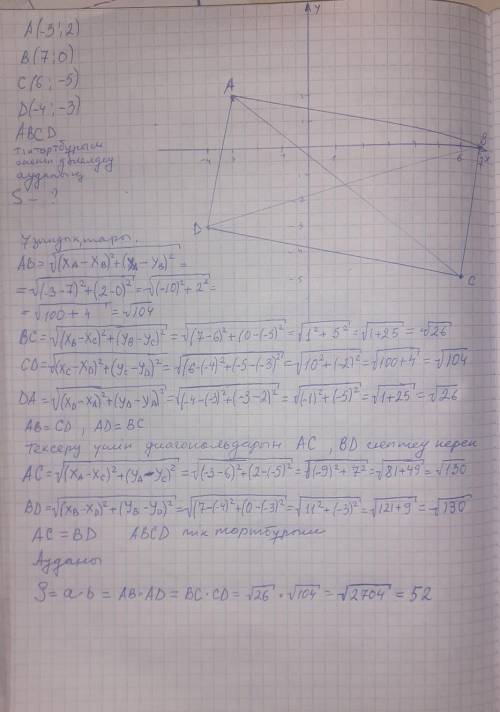 A(-3; 2)
B(7; 0)
C(6; -5)
D(-4; -3)
ABCD
тіктөртбұрыш
екенін дәлелдеу
ауданын
S - ?
y
A
B
-4
6
7 x
D
C
Ұзындықтары.
AB = √(xA - xB)² + (yA - yB)² =
= √(-3-7)² + (2-0)² = √(-10)² + 2² =
= √100 + 4 = √104
BC = √(xB - xC)² + (yB - yC)² = √(7-6)² + (0-(-5)² = √1² + 5² = √1+25 = √26
CD = √(xC - xD)² + (yC - yD)² = √(6-(-4)² + (-5-(-3)² = √10² + (-2)² = √100+4 = √104
DA = √(xD - xA)² + (yD - yA)² = √(-4-(-3)² + (-3-2)² = √(-1)² + (-5)² = √1+25 = √26
AB = CD , AD = BC
Тексеру үшін диагональдарын AC , BD есептеу керек
AC = √(xA - xC)² + (yA - yC)² = √(-3-6)² + (2-(-5)² = √(-9)² + 7² = √81+49 = √130
BD = √(xB - xD)² + (yB - yD)² = √(7-(-4)² + (0-(-3)² = √11² + (-3)² = √121+9 = √130
AC = BD ABCD тік төртбұрыш
Ауданы
S = a · b = AB · AD = BC · CD = √26 · √104 = √2704 = 52